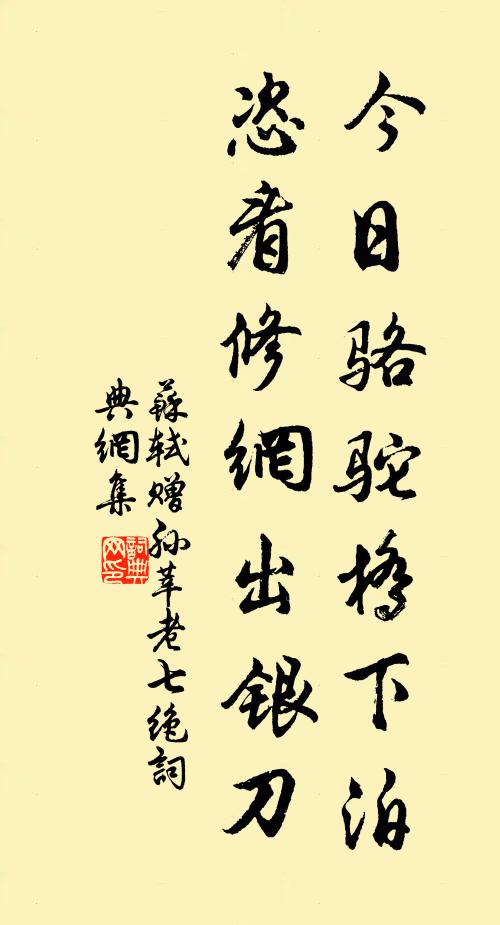 今日骆駝橋下泊
恣看修網出銀刀
蘇軾赠孙莘老七绝詞
典網集
詞典
网印